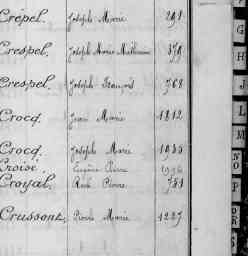 Crépel. Joseph Marie 291
Crespel. Joseph Marie Mathurin 379
Crespel. Joseph François 768
Crocq. Jean Marie 1812
Crocq. Joseph Marie
Croisé. Eugène Pierre
Croyal. René Pierre 781
Crussont. Pierre Marie 1227
H
I
J
L
M
NO
P